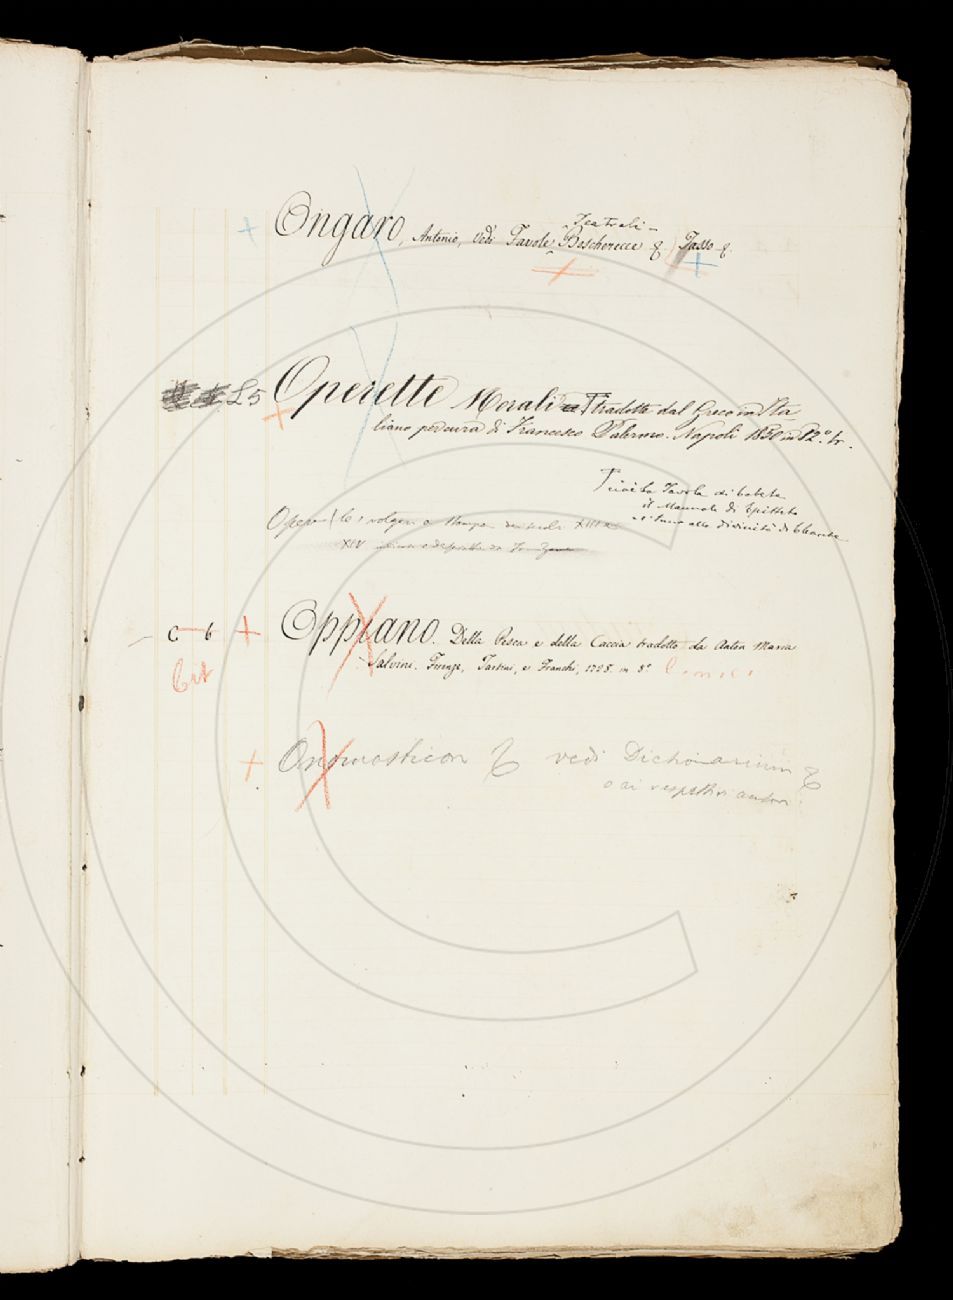 Teatrali
Ongaro, Antonio, Vedi Favole Boscherecce & Tasso &.
L 5 Operette Morali Tradotte dal Greco in Ita
liano per cura di Francesco Palermo. Napoli 1830 in 12.° br.
Cioè la Tavola di Cebete
il Manuale di Epitteto
e l'Inno alla Divinità di Cleante
Opere volgari a stampa dei secoli XIII e
XIV
C 6 Oppiano. Della Pesca e della Caccia tradotto da Anton Maria
Salvini. Firenze, Tartini, e Franchi, 1728. in 8°
Onomasticon & vedi Dictionarium &
o ai respettivi autori